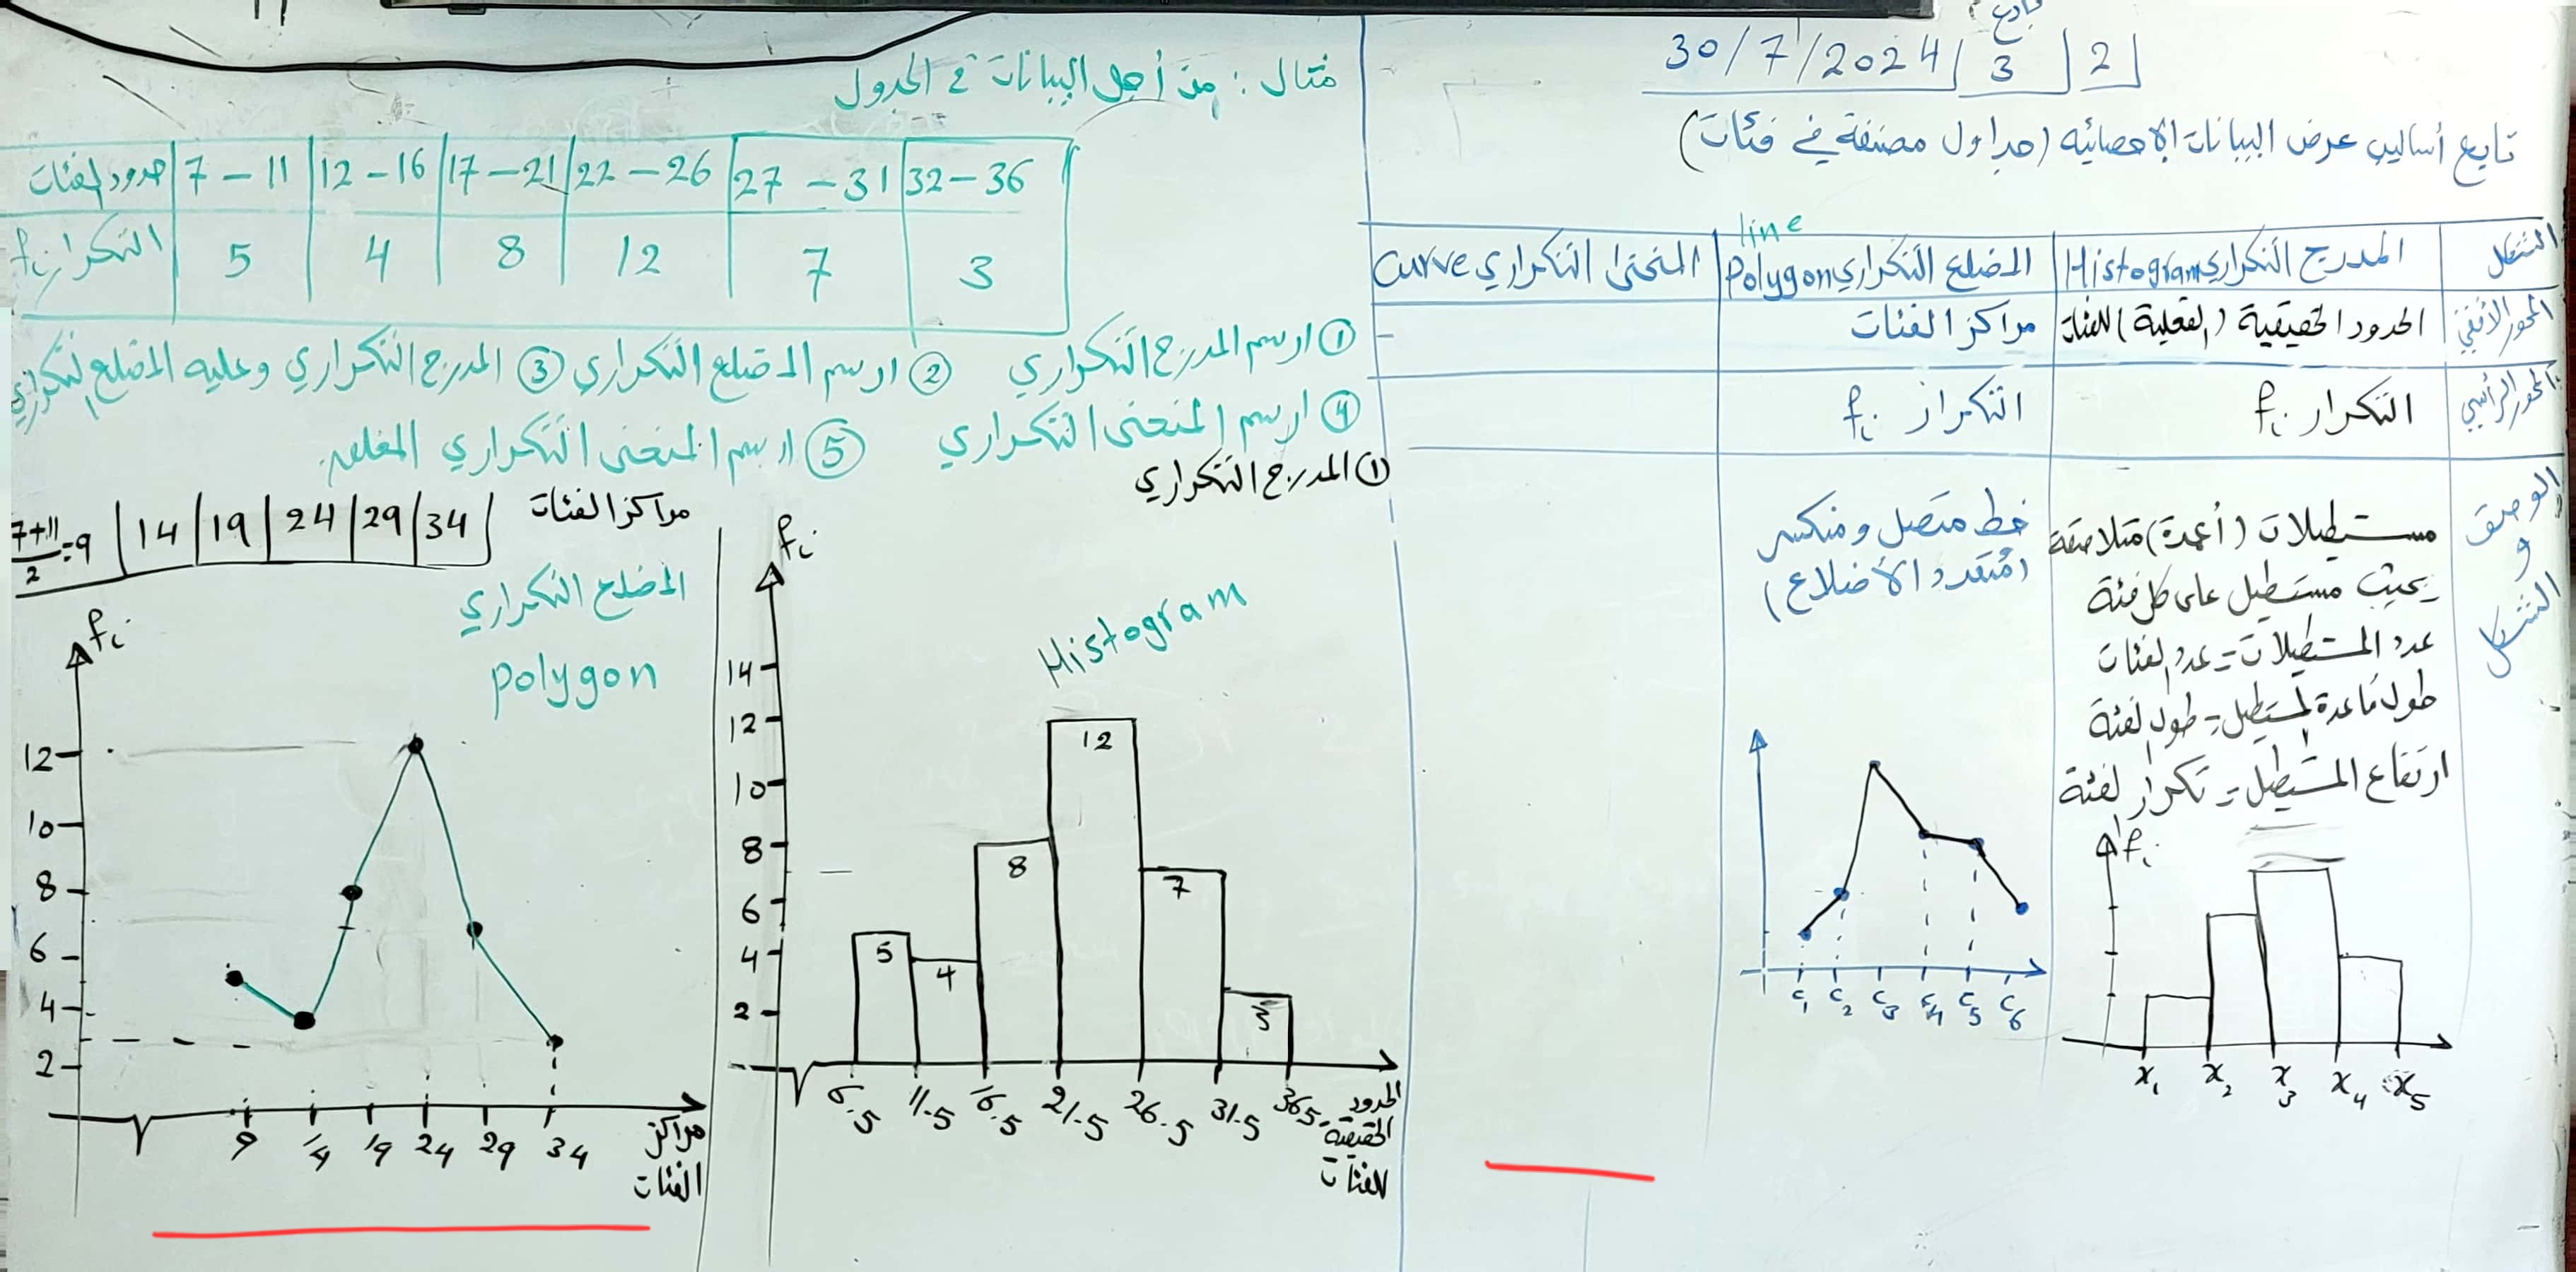 تابع
2 | 3 | 30/7/2024
تابع أساليب عرض البيانات الإحصائية (جداول مصنفة في فئات)
الشكل | المدرج التكراري Histogram | المضلع التكراري Polygon line | المنحنى التكراري Curve
المحور الأفقي | الحدود الحقيقية (الفعلية) للفئات | مراكز الفئات | -
المحور الرأسي | التكرار fi | التكرار fi
الوصف و الشكل
مستطيلات (أعمدة) متلاصقة
بحيث مستطيل على كل فئة
عدد المستطيلات = عدد الفئات
طول قاعدة المستطيل = طول الفئة
ارتفاع المستطيل = تكرار الفئة
fi
x1 x2 x3 x4 x5
خط متصل و منكسر
(متعدد الأضلاع)
c1 c2 c3 c4 c5 c6
مثال : من أجل البيانات في الجدول
حدود الفئات | 7 – 11 | 12 – 16 | 17 – 21 | 22 – 26 | 27 – 31 | 32 – 36
التكرار fi | 5 | 4 | 8 | 12 | 7 | 3
① ارسم المدرج التكراري ② ارسم المضلع التكراري ③ المدرج التكراري وعليه المضلع التكراري
④ ارسم المنحنى التكراري ⑤ ارسم المنحنى التكراري المغلق.
① المدرج التكراري
fi
Histogram
14
12
10
8
6
4
2
5 4 8 12 7 3
6.5 11.5 16.5 21.5 26.5 31.5 36.5
الحدود
الحقيقية
للفئات
مراكز الفئات
7+11/2 = 9 | 14 | 19 | 24 | 29 | 34
المضلع التكراري
polygon
fi
12
10
8
6
4
2
9 14 19 24 29 34
مراكز
الفئات